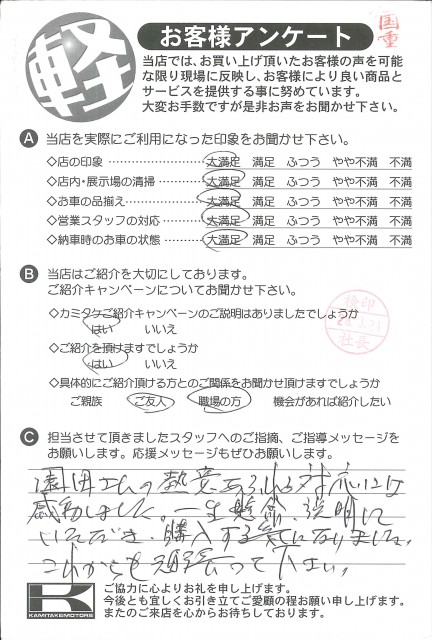 軽
お客様アンケート
国重
当店では、お買い上げ頂いたお客様の声を可能
な限り現場に反映し、お客様により良い商品と
サービスを提供する事に努めています。
大変お手数ですが是非お声をお聞かせ下さい。
A 当店を実際にご利用になった印象をお聞かせ下さい。
◇店の印象 …………………… 大満足 満足 ふつう やや不満 不満
◇店内・展示場の清掃………… 大満足 満足 ふつう やや不満 不満
◇お車の品揃え ……………… 大満足 満足 ふつう やや不満 不満
◇営業スタッフの対応………… 大満足 満足 ふつう やや不満 不満
◇納車時のお車の状態………… 大満足 満足 ふつう やや不満 不満
B 当店はご紹介を大切にしております。
ご紹介キャンペーンについてお聞かせ下さい。
◇カミタケご紹介キャンペーンのご説明はありましたでしょうか
はい いいえ
検印
社長
◇ご紹介を頂けますでしょうか
はい いいえ
◇具体的にご紹介頂ける方とのご関係をお聞かせ頂けますでしょうか
ご親族 ご友人 職場の方 機会があれば紹介したい
C 担当させて頂きましたスタッフへのご指摘、ご指導メッセージを
お願いします。応援メッセージもぜひお願いします。
園田さんの熱意あふれる対応には
感動しました。一生懸命、説明して
いただき、購入する気になりました。
これからも頑張って下さい。
K
KAMITAKEMOTORS
ご協力に心よりお礼を申し上げます。
今後とも宜しくお引き立てご愛顧の程お願い申し上げます。
またのご来店を心からお待ちしております。